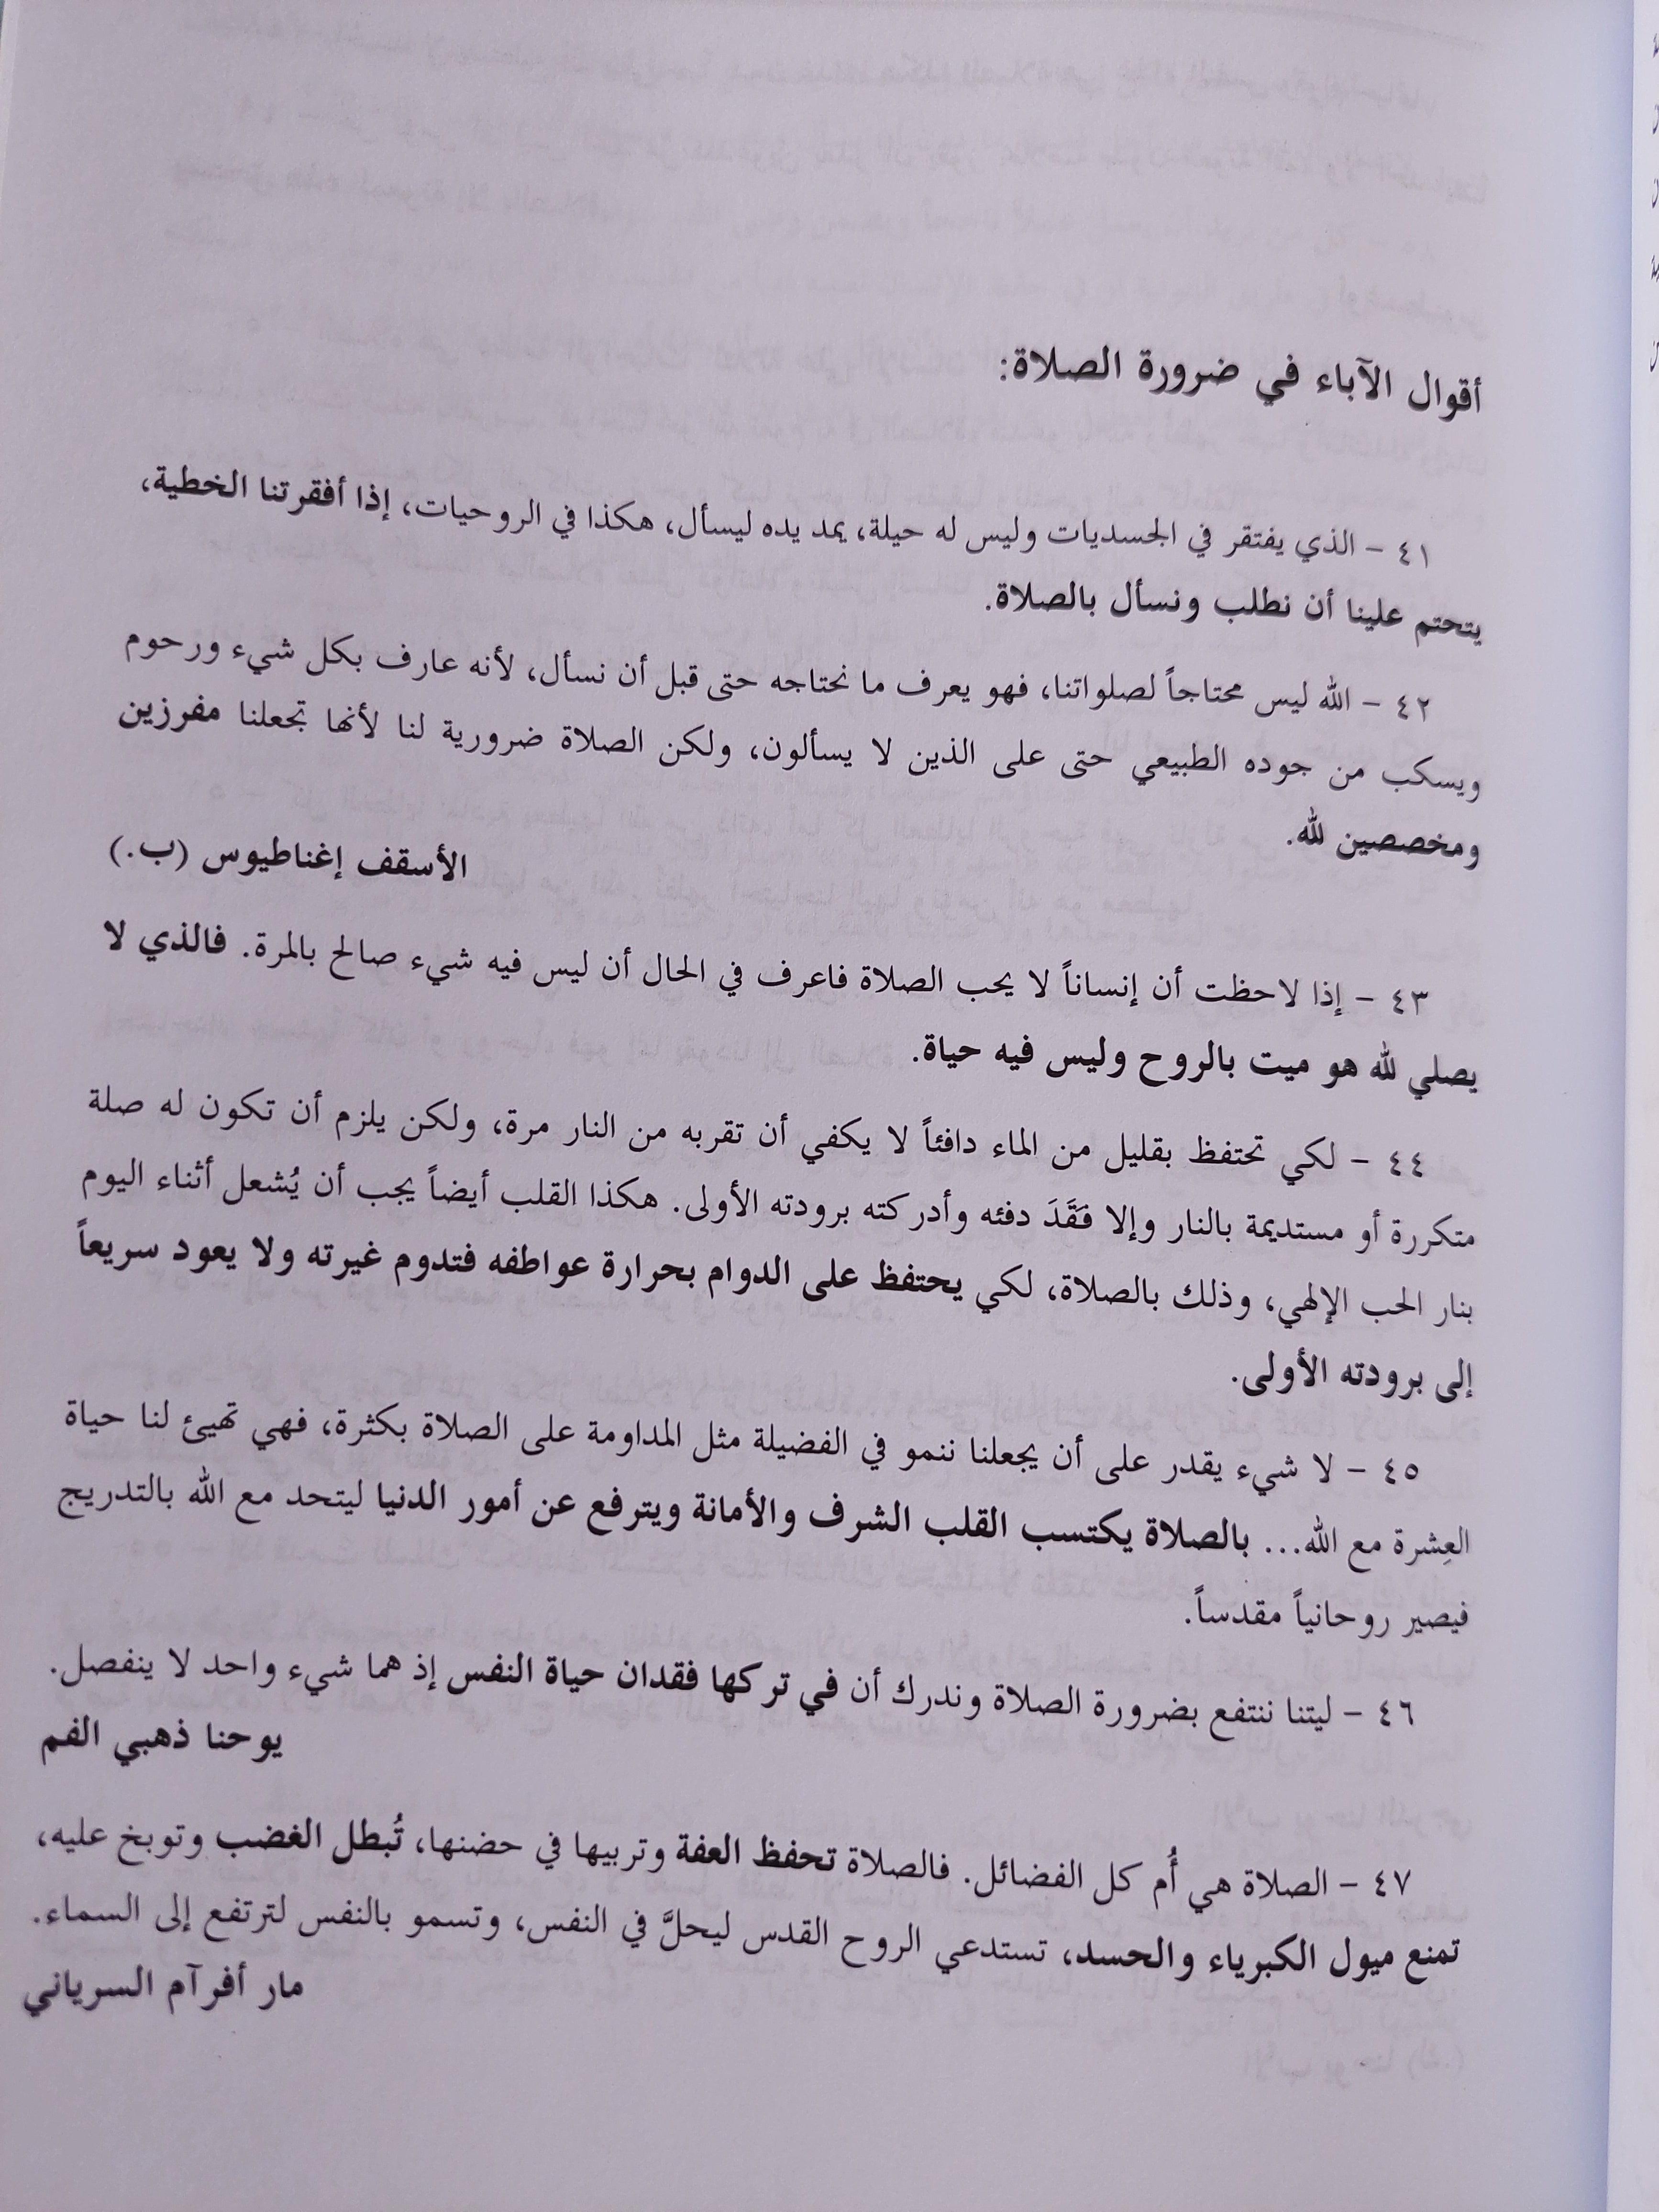 أقوال الآباء في ضرورة الصلاة:
٤١ – الذي يفتقر في الجسديات وليس له حيلة، يمد يده ليسأل، هكذا في الروحيات، إذا أفقرتنا الخطية،
يتحتم علينا أن نطلب ونسأل بالصلاة.
٤٢ – الله ليس محتاجاً لصلواتنا، فهو يعرف ما نحتاجه حتى قبل أن نسأل، لأنه عارف بكل شيء ورحوم
ويسكب من جوده الطبيعي حتى على الذين لا يسألون، ولكن الصلاة ضرورية لنا لأنها تجعلنا مفرزين
ومخصصين لله.
الأسقف إغناطيوس (ب.)
٤٣ – إذا لاحظت أن إنساناً لا يحب الصلاة فاعرف في الحال أن ليس فيه شيء صالح بالمرة. فالذي لا
يصلي لله هو ميت بالروح وليس فيه حياة.
٤٤ – لكي تحتفظ بقليل من الماء دافئاً لا يكفي أن تقربه من النار مرة، ولكن يلزم أن تكون له صلة
متكررة أو مستديمة بالنار وإلا فَقَدَ دفئه وأدركته برودته الأولى. هكذا القلب أيضاً يجب أن يُشعل أثناء اليوم
بنار الحب الإلهي، وذلك بالصلاة، لكي يحتفظ على الدوام بحرارة عواطفه فتدوم غيرته ولا يعود سريعاً
إلى برودته الأولى.
٤٥ – لا شيء يقدر على أن يجعلنا ننمو في الفضيلة مثل المداومة على الصلاة بكثرة، فهي تهيئ لنا حياة
العِشرة مع الله... بالصلاة يكتسب القلب الشرف والأمانة ويترفع عن أمور الدنيا ليتحد مع الله بالتدريج
فيصير روحانياً مقدساً.
٤٦ – ليتنا ننتفع بضرورة الصلاة وندرك أن في تركها فقدان حياة النفس إذ هما شيء واحد لا ينفصل.
يوحنا ذهبي الفم
٤٧ – الصلاة هي أُم كل الفضائل. فالصلاة تحفظ العفة وتربيها في حضنها، تُبطل الغضب وتوبخ عليه،
تمنع ميول الكبرياء والحسد، تستدعي الروح القدس ليحلَّ في النفس، وتسمو بالنفس لترتفع إلى السماء.
مار أفرآم السرياني